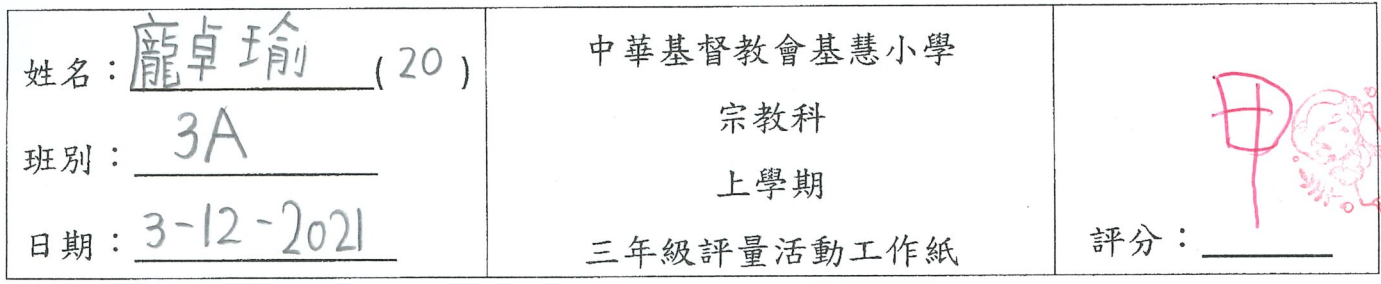 姓名：龐卓瑜 ( 20 )
班別：3A
日期：3-12-2021
中華基督教會基慧小學
宗教科
上學期
三年級評量活動工作紙
甲
評分：